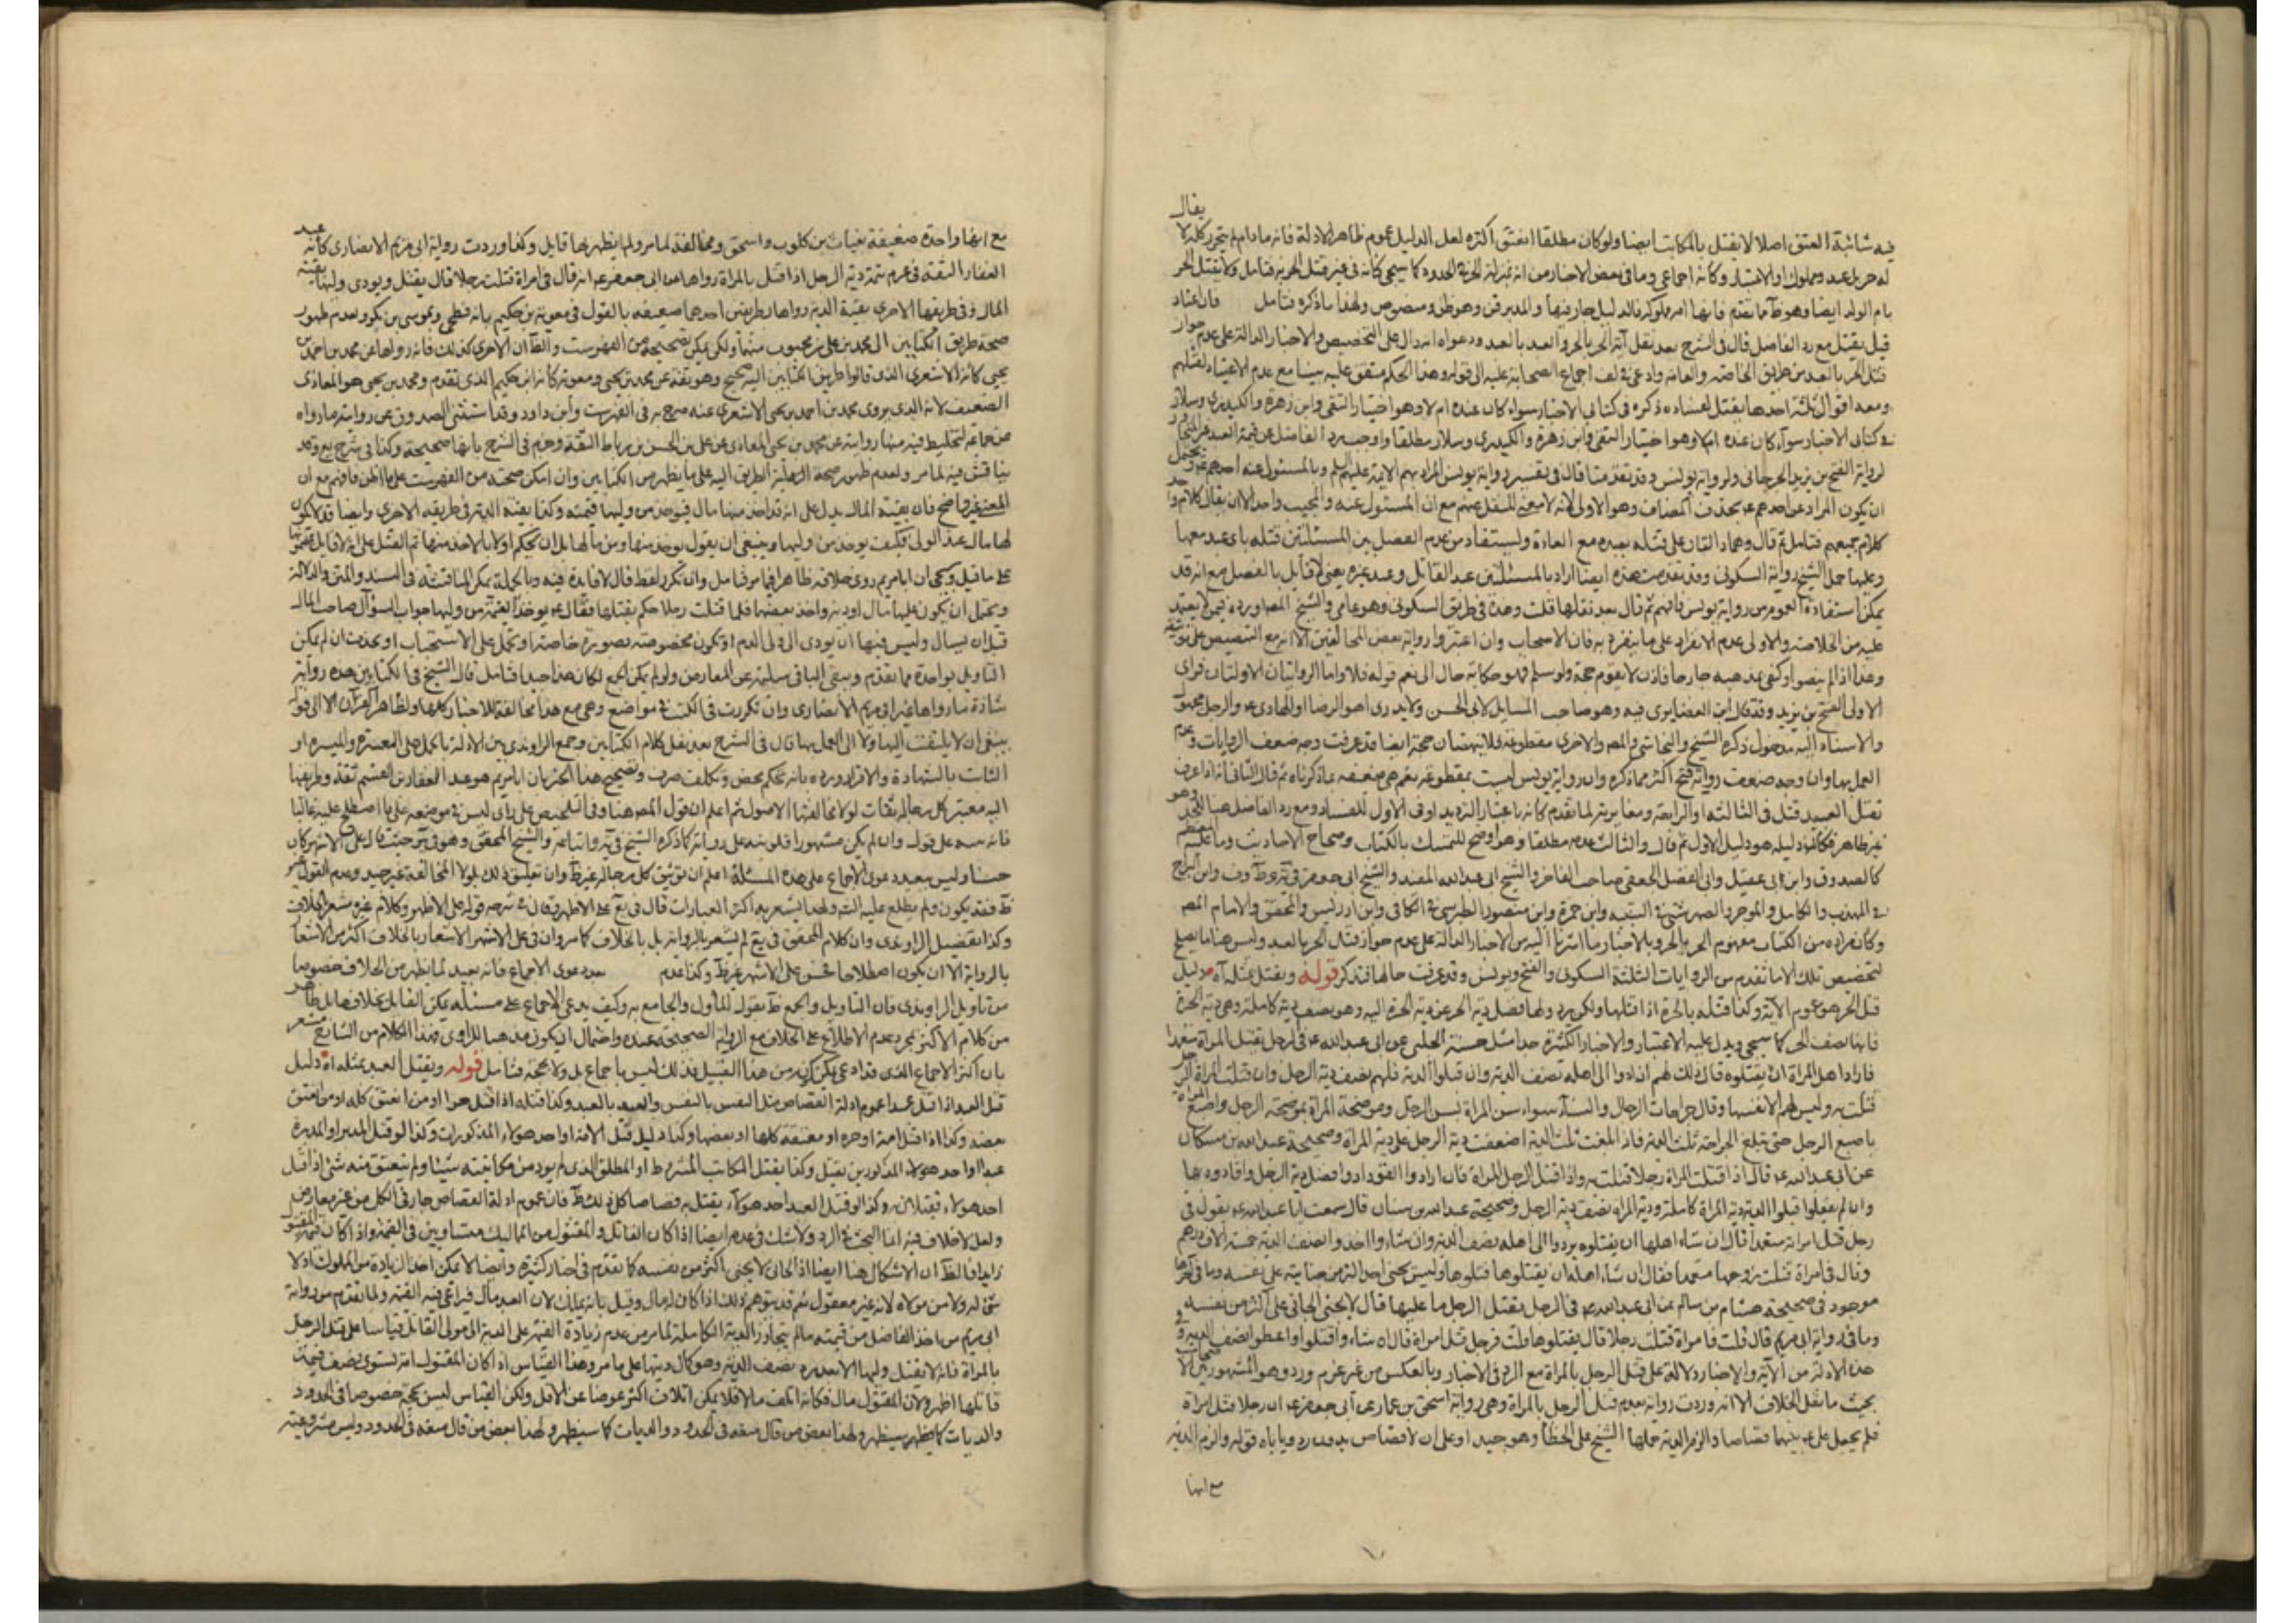 فيه شائبة العتق اصلا لا يقتل بالمكاتب ايضا ولو كان مطلقا انعتق اكثره لعل الدليل عموم ظاهر الادلة فانه ما دام لم يتحرر كله لا يقال
له حر بل عبد ومملوك والاعتبار وكانه اجماعي وما في بعض الاخبار من انه بمنزلة الحر في الحدود كما سيجي كانه في غير قتل الحر به فتامل ولا يقتل الحر
بام الولد ايضا وهو ظ مما تقدم فانها امة مملوكة فالدليل جار فيها والمدبر قن وهو ظ ومنصوص ولهذا ما ذكره فتامل فان اعتاد
قيل يقتل مع رد الفاضل قال في الشرح بعد نقل آية الحر بالحر والعبد بالعبد ودعواه انه دال على التخصيص والاخبار الدالة على عدم جواز
قتل الحر بالعبد من طريق الخاصة والعامة وادعى في لف اجماع الصحابة عليه الى قوله وهذا الحكم متفق عليه بيننا مع عدم الاعتياد لقتلهم
ومعه اقوال ثلثة احدها يقتل لفساده ذكره في كتابي الاخبار سواء كان عنده ام لا وهو اختيار التقى وابن زهرة والكيدري وسلار
في كتابي الاخبار سواء كان عنده ام لا وهو اختيار التقى وابن زهرة والكيدري وسلار مطلقا واوجب رد الفاضل عن قيمة العبد
لرواية الفتح بن يزيد الجرجاني ولرواية يونس وقد تقدمتا قال في تفسير رواية يونس المراد بهم الائمة عليهم السلم وبالمسئول عنه احدهم
ان يكون المراد عن احدهم ع بحذف المضاف وهو الاولى لانه لا معنى للنقل عنهم مع ان المسئول عنه والمجيب واحد الا ان يقال كلام واحد
كلام جميعهم فتامل ثم قال وهما دالتان على قتله بعبده مع العادة وليستفاد من عدم الفصل بين المسئلتين قتله باي عبد معها
وعليها حمل الشيخ رواية السكوني وقد تقدمت هذه ايضا اراد بالمسئلتين عبد القاتل وعبد غيره يعني لا قائل بالفصل مع انه قد
يمكن استفادة العموم من رواية يونس فافهم ثم قال بعد نقلها قلت وهذه في طريق السكوني وهو عامي والشيخ المص اورده فيمن لا يعتمد
عليه من الخلاصة والاولى عدم الانفراد على ما ينفرد به فان الاصحاب وان اعتبروا رواية بعض المخالفين الا انه مع التنصيص على توثيقه
وهذا اذ لم ينصوا وكفى بمذهبه جارحا فاذن لا يقوم حجة ولو سلم فهو حكاية حال الى نعم قوله فلا واما الروايتان الاولتان فراوي
الاولى الفتح بن يزيد وقد قال ابن الغضايري فيه وهو صاحب المسايل لابي الحسن ولا يدرى اهو الرضا او الهادي ع والرجل مجهول
والاسناد اليه مدخول ذكره الشيخ والنجاشي والمص والاخرى مقطوعة فلا ينهضان حجة ايضا قد عرفت وجه ضعف الروايات وعدم
العمل بها وان وجه ضعف رواية فتح اكثر مما ذكره وان رواية يونس ليست بمقطوعة نعم هي ضعيفة بما ذكرناه ثم قال الثاني انه اذا عرف
بقتل العبيد قتل في الثالثة او الرابعة ومغايرته لما تقدم كانه باعتبار الترديد او في الاول للفساد ومع رد الفاضل هنا للحد وهو
غير ظاهر فكانه دليله هو دليل الاول ثم قال والثالث عدمه مطلقا وهو اوضح للتمسك بالكتاب وصحاح الاحاديث وما عليه المعظم
كالصدوق وابن ابي عقيل وابي الفضل الجعفي صاحب الفاخر والشيخ ابي عبد الله المفيد والشيخ ابي جعفر في يه وط وف وابن البراج
في المهذب والكامل والموجز والصهرشتي في التنبيه وابن حمزة وابن منصور الطبرسي في الكافي وابن ادريس والمحقق والامام المص
وكان مراده من الكتاب مفهوم الحر بالحر وبالاخبار ما اشرنا اليه من الاخبار الدالة على عدم جواز قتل الحر بالعبد وليس هنا ما يصلح
لتخصيص تلك الا ما تقدم من الروايات الثلثة السكوني والفتح ويونس وقد عرفت حالها فتذكر قوله ويقتل بمثله آه دليل
قتل الحر هو عموم الآية وكذا قتله بالحرة اذا قتلها ولكن يرد ولها فضل دية الحر عن دية الحرة اليه وهو نصف دية كاملة وهي دية الحرة
فانها نصف الحر كما سيجي ويدل عليه الاعتبار والاخبار الكثيرة جدا مثل حسنة الحلبي عن ابي عبد الله ع في الرجل يقتل المراة متعمدا
فاراد اهل المراة ان يقتلوه قال ذلك لهم اذا ادوا الى اهله نصف الدية وان قبلوا الدية فلهم نصف دية الرجل وان قتلت المراة الرجل
قتلت به وليس لهم الا نفسها وقال جراحات الرجال والنساء سواء سن المراة بسن الرجل وموضحة المراة بموضحة الرجل واصبع المراة
باصبع الرجل حتى تبلغ الجراحة ثلث الدية فاذا بلغت ثلث الدية اضعفت دية الرجل على دية المراة وصحيحة عبد الله بن مسكان
عن ابي عبد الله ع قال اذا قتلت المراة رجلا قتلت به واذا قتل الرجل المراة فان ارادوا القود ادوا فضل دية الرجل واقادوه بها
وان لم يفعلوا قبلوا الدية دية المراة كاملة ودية المراة نصف دية الرجل وصحيحة عبد الله بن سنان قال سمعت ابا عبد الله ع يقول في
رجل قتل امراته متعمدا قال ان شاء اهلها ان يقتلوه يردوا الى اهله نصف الدية وان شاءوا اخذوا نصف الدية خمسة الاف درهم
وقال في امراة قتلت زوجها متعمدا فقال ان شاء اهله ان يقتلوها قتلوها وليس يجني احد اكثر من جنايته على نفسه وما في آخرها
موجود في صحيحة هشام بن سالم عن ابي عبد الله ع في الرجل يقتل الرجل ما عليها قال لا يجني الجاني على اكثر من نفسه
وما في رواية ابي مريم قال قلت فامراة قتلت رجلا قال يقتلوها قلت فرجل قتل امراة قال ان شاءوا قتلوا واعطوا نصف الدية و
هذه الادلة من الآية والاخبار دلالة على قتل الرجل بالمراة مع الرد في الاخبار وبالعكس من غير غرم ورد وهو المشهور بين الاصحاب
بحيث ما نقل الخلاف الا انه وردت رواية بعدم قتل الرجل بالمراة وهي رواية اسحق بن عمار عن ابي جعفر ع ان رجلا قتل امراة
فلم يجعل علي ع بينهما قصاصا والزمه الدية حملها الشيخ على الخطأ وهو جيد او على ان لا قصاص بدون رد ويأباه قوله والزمه الدية
مع انها
مع انها واحدة ضعيفة بغياث بن كلوب واسحق ومخالفة لما مر ولم يظهر بها قايل وكذا وردت رواية ابي مريم الانصاري كانه عبد
الغفار الثقة في غرم تتمة دية الرجل اذا قتل بالمراة رواها عن ابي جعفر ع انه قال في امراة قتلت رجلا قال يقتل ويودى وليها بقية
المال وفي طريقها الاخرى بقية الدية رواها بطريقين احدهما ضعيفة بالقول في معوية بن حكيم بانه فطحي وبموسى بن بكر وبعدم ظهور
صحة طريق الكتابين الى محمد بن علي بن محبوب منهما ولكن يمكن تصحيحه من الفهرست والظ ان الاخرى كذلك فانه رواها عن محمد بن احمد بن
يحيى كانه الاشعري الذي قالوا طريق الكتابين اليه صحيح وهو ثقة عن محمد بن يحيى ومعوية كانه ابن حكيم الذي تقدم ومحمد بن يحيى هو المعاذي
الضعيف لانه الذي يروي محمد بن احمد بن يحيى الاشعري عنه صرح به في الفهرست وابن داود وقد استثنى الصدوق عن روايته ما رواه
عن جماعة لتخليط فيه منها رواية عن محمد بن يحيى المعاذي وعن علي بن الحسن بن رباط الثقة وجزم في الشرح بانها صحيحة وكذا في شرح يع وقد
يناقش فيه لما مر ولعدم ظهور صحة الطريق اليه على ما يظهر من الكتابين وان امكن صحته من الفهرست على ما اظن فافهم مع ان
المعنى غير واضح فان بقية المال يدل على انه قد اخذ منها مال فيؤخذ من وليها قيمته وكذا بقية الدية في طريقه الاخرى وايضا قد لا يكون
لها مال عند الولى فكيف يوخذ من وليها وينبغي ان يقول يوخذ منها ومن مالها بل ان يحكم اولا بالاخذ منها ثم القتل على انه لا قايل بمضمونها
على ما قيل وسيجي ان ابا مريم روى خلافه ظاهرا فيما مر فتامل وان تكرر لفظ قال لا فايدة فيه وبالجملة يمكن المناقشة في السند والمتن والدلالة
ويحتمل ان يكون عليها مال او دية واخذ بعضها فلما قتلت رجلا حكم بقتلها فقال ع يوخذ البقية من وليها جواب السؤال صاحب المال
قبل ان يسال وليس فيها ان يودى الى ولى الدم او تكون مخصوصة بصورة خاصة او تحمل على الاستحباب او بحذف ان لم يمكن
التاويل بواحدة مما تقدم ويبقى الباقي سليمة عن المعارض ولو لم يكن الجمع لكان هذا جيدا فتامل قال الشيخ في الكتابين هذه رواية
شاذة ما رواها غير ابي مريم الانصاري وان تكررت في الكتب في مواضع وهي مع هذا مخالفة للاخبار كلها ولظاهر القرآن الى قوله
ينبغي ان لا يلتفت اليها ولا الى العمل بها قال في الشرح بعد نقل كلام الكتابين وجمع الراوندي بين الادلة بالحمل على المعسرة والميسرة او
الثابت بالشهادة والاقرار ورده بانه تحكم محض وتكلف صرف وتصحيح هذا الخبر بان ابا مريم هو عبد الغفار بن القسم ثقة وطريقها
اليه معتبر كل رجاله ثقات لولا مخالفتها الاصول ثم اعلم ان قول المص هنا وفي التلخيص على راي ليس في موضعه على ما اصطلح عليه غالبا
فانه ينبه على قول وان لم يكن مشهورا فلو نبه على رواية كما ذكره الشيخ في يه واتباعه والشيخ المحقق وهو في يع حيث قال على الاشهر كان
حسنا وليس ببعيد دعوى الاجماع على هذه المسئلة اعلم ان توثيق كل رجاله غير ظ وان تعليق ذلك بلولا المخالفة غير جيد وعدم القول غير
ظ فقد يكون ولم يطلع عليه الشه ولهذا يشعر به اكثر العبارات قال في يع على الاظهر وقال في شرحه قوله على الاظهر وكلام غيره يشعر بالخلاف
وكذا تفصيل الراوندي وان كلام المحقق في يع لم يشعر بالرواية بل بالخلاف كما مر وان في على الاشهر الاشعار بالخلاف اكثر من الاشعار
بالرواية الا ان يكون اصطلاحا فحسن على الاشهر غير ظ وكذا عدم بعد دعوى الاجماع فانه بعيد لما يظهر من الخلاف خصوصا
من تاويل الراوندي فان التاويل والجمع ظ بقوله للمأول والجامع به وكيف يدعى الاجماع على مسئلة يمكن القائل بخلافها بل ظاهر
من كلام الاكثر بمجرد عدم الاطلاع على الخلاف مع الرواية الصحيحة عنده واحتمال ان يكون مذهبا للراوي فهذا الكلام من الشارح مشعر
بان اكثر الاجماع الذي قد ادعي يمكن كونه من هذا القبيل فذلك ليس باجماع بل ولا بحجة فتامل قوله ويقتل العبد بمثله آه دليل
قتل العبد اذا قتل عبدا عموم ادلة القصاص مثل النفس بالنفس والعبد بالعبد وكذا قتله اذا قتل حرا او من انعتق كله او من انعتق
بعضه وكذا اذا قتل امة او حرة او معتقة كلها او بعضها وكذا دليل قتل الامة او احد هؤلاء المذكورات وكذا لو قتل المدبر او المدبرة
عبدا او احد هؤلاء المذكورين يقتل وكذا يقتل المكاتب المشروط او المطلق الذي لم يود من مكاتبته شيئا ولم ينعتق منه شئ اذا قتل
احد هؤلاء فيقتلان به وكذا لو قتل العبد احد هؤلاء يقتل به قصاصا كل ذلك ظ فان عموم ادلة القصاص جار في الكل من غير معارض
ولعل لا خلاف فيه انما البحث في الرد ولا شك في عدمه ايضا اذا كان القاتل والمقتول من المماليك متساويين في القيمة واذا كان قيمة المقتول
زايدا فالظ ان لا اشكال هنا ايضا اذ الجاني لا يجني اكثر من نفسه كما تقدم في اخبار كثيرة وايضا لا يمكن اخذ الزيادة من المملوك اذ لا
شئ له ولا من مولاه لانه غير معقول نعم قد يتوهم ذلك اذا كان له مال وقيل بانه يملك لان العبد مال فيراعى فيه القيمة ولما تقدم من رواية
ابي مريم من اخذ الفاضل من قيمته ما لم يتجاوز الدية الكاملة لما مر من عدم زيادة القيمة على الدية الى مولى القاتل قياسا على قتل الرجل
بالمراة فانه لا يقتل وليها الا بعد رد نصف الدية وهو كمال ديتها على ما مر وهذا القياس اذا كان المقتول امة تسوى نصف قيمة
قاتلها اظهر ولان المقتول مال فكانه اتلف مالا فلا يمكن اتلاف اكثر عوضا عن الاقل ولكن القياس ليس بحجة خصوصا في الحدود
والديات كما سيظهر ولهذا بعض من قال منعه في الحدود والديات كما سيظهر ولهذا بعض من قال منعه في الحدود وليس مشروعيته